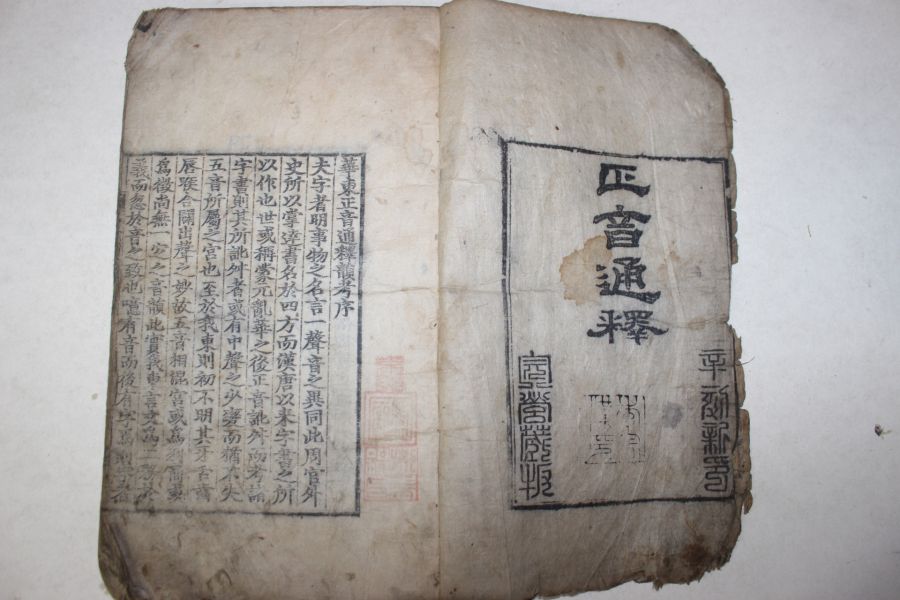 正音通釋
新印
完營藏板
華東正音通釋韻考序
夫字者明事物之名言一聲音之異同此周官外
史所以掌達書名於四方而漢唐以來字書之所
以作也世或稱蒙元亂華之後正音訛舛而考諸
字書則其所訛舛者或有中聲之少變而猶不失
五音所屬之宮也至於我東則初不明其牙舌齒
唇喉合闢出聲之妙故五音相混宮或爲
爲徵尚無一定之音韻此實我東言文爲二務於
義而忽於音之致也噫有音而後有字焉則